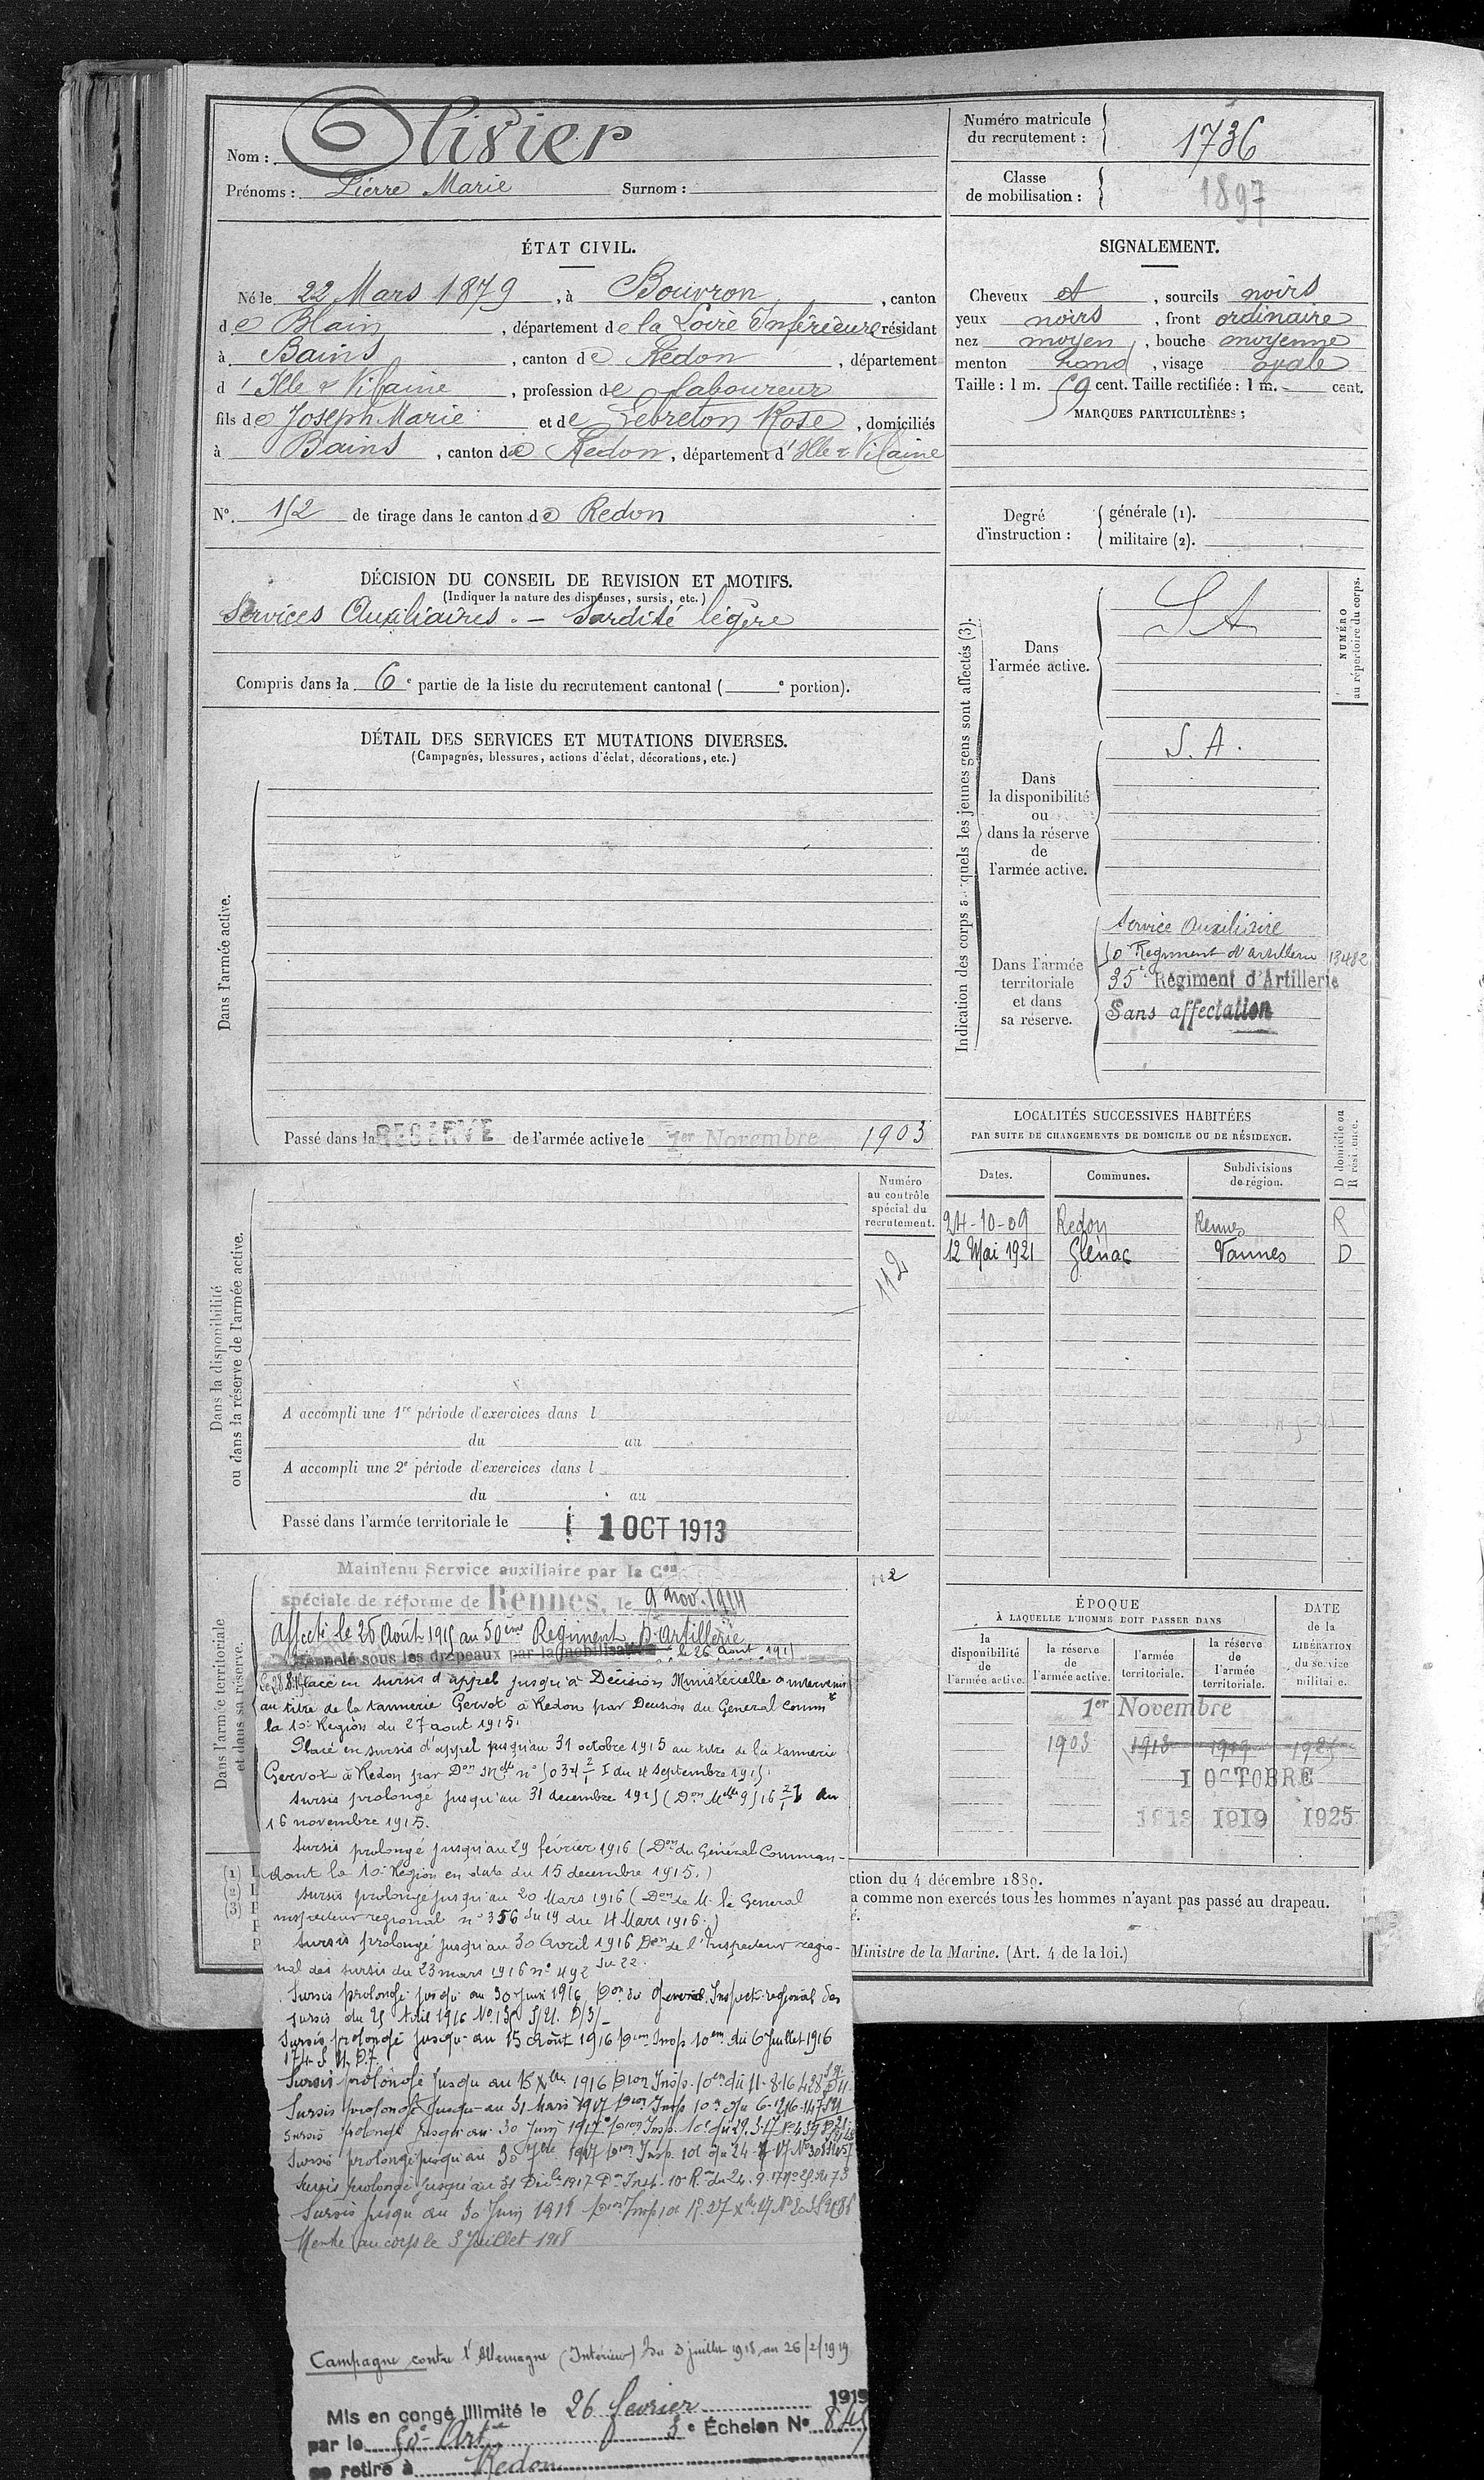 Nom : Olivier
Prénoms : Pierre Marie Surnom :
Numéro matricule du recrutement : 1736
Classe de mobilisation : 1897
ÉTAT CIVIL.
Né le 22 Mars 1879, à Bouvron, canton
de Blain, département de la Loire Inférieure résidant
à Bains, canton de Redon, département
d'Ille & Vilaine, profession de laboureur
fils de Joseph Marie et de Lebreton Rose, domiciliés
à Bains, canton de Redon, département d'Ille & Vilaine
N° 152 de tirage dans le canton de Redon
SIGNALEMENT.
Cheveux et, sourcils noirs
yeux noirs, front ordinaire
nez moyen, bouche moyenne
menton rond, visage ovale
Taille : 1 m. 59 cent. Taille rectifiée : 1 m. - cent.
MARQUES PARTICULIÈRES :
Degré d'instruction : générale (1).
militaire (2).
DÉCISION DU CONSEIL DE REVISION ET MOTIFS.
(Indiquer la nature des dispenses, sursis, etc.)
Services Auxiliaires. - Surdité légère
Compris dans la 6e partie de la liste du recrutement cantonal ( e portion).
DÉTAIL DES SERVICES ET MUTATIONS DIVERSES.
(Campagnes, blessures, actions d'éclat, décorations, etc.)
Dans l'armée active.
Passé dans la RESERVE de l'armée active le 1er Novembre 1903
Indication des corps auxquels les jeunes gens sont affectés (3).
NUMÉRO au répertoire du corps.
Dans l'armée active.
S A
Dans la disponibilité ou dans la réserve de l'armée active.
S. A.
Dans l'armée territoriale et dans sa réserve.
Service Auxiliaire
50e Régiment d'Artillerie 13482
35e Régiment d'Artillerie
Sans affectation
LOCALITÉS SUCCESSIVES HABITÉES
PAR SUITE DE CHANGEMENTS DE DOMICILE OU DE RÉSIDENCE.
D domicile ou R résidence.
Dates. Communes. Subdivisions de région.
24-10-09 Redon Rennes R
12 Mai 1921 Glénac Vannes D
Dans la disponibilité
ou dans la réserve de l'armée active.
Numéro au contrôle spécial du recrutement.
112
A accompli une 1re période d'exercices dans l
du au
A accompli une 2e période d'exercices dans l
du au
Passé dans l'armée territoriale le 1 OCT 1913
Dans l'armée territoriale et dans sa réserve.
Maintenu Service auxiliaire par la Con
spéciale de réforme de Rennes, le 9 nov. 1914
112
Affecté le 26 Août 1915 au 50ème Régiment d'Artillerie
Rappelé sous les drapeaux par la mobilisation le 26 Aout 1915
Placé en sursis d'appel jusqu'à Décision Ministérielle à intervenir
au titre de la tannerie Gervot à Redon par Décision du Général Commt
la 10e Région du 27 aout 1915.
Placé en sursis d'appel jusqu'au 31 octobre 1915 au titre de la tannerie
Gervot à Redon par Don Melle n° 5034 2/1 I du 4 septembre 1915.
Sursis prolongé jusqu'au 31 decembre 1915 (Don Melle 9516 2/1 I du
16 novembre 1915.
Sursis prolongé jusqu'au 29 février 1916 (Don du Général Comman-
dant la 10e Région en date du 15 decembre 1915.)
Sursis prolongé jusqu'au 20 Mars 1916 (Don de M. le General
inspecteur regional n° 356 du 4 Mars 1916.)
Sursis prolongé jusqu'au 30 Avril 1916 Don de l'Inspecteur regio-
nal des sursis du 23 mars 1916 n° 492
Sursis prolongé jusqu'au 30 Juin 1916 Don du General Inspect. regional des
sursis du 25 Avril 1916
Sursis prolongé jusqu'au 15 Août 1916 Don Insp. 10em du 6 Juillet 1916
Sursis prolongé jusqu'au 15 Xbre 1916 Don Insp. 10em du 11-8-16
Sursis prolongé jusqu'au 31 Mars 1917 Don Insp 10e du 6-12-16
Sursis prolongé jusqu'au 30 Juin 1917 Don Insp.
Sursis prolongé jusqu'au 30 7bre 1917 Don Insp. 10e du 24
Sursis prolongé jusqu'au 31 Décbre 1917 Don Insp. 10e R.
Sursis jusqu'au 30 Juin 1918 Don Insp 10e R. 27 Xbre 17
Rentré au corps le 3 Juillet 1918
Campagne contre l'Allemagne (Intérieur) Du 3 juillet 1918 au 26/2/1919
Mis en congé illimité le 26 février 1919
par le 50e Artie 3e Échelon N° 845
se retire à Redon
ÉPOQUE
À LAQUELLE L'HOMME DOIT PASSER DANS
la disponibilité de l'armée active.
la réserve de l'armée active.
l'armée territoriale.
la réserve de l'armée territoriale.
DATE de la LIBÉRATION du service militaire.
1er Novembre
1903 1913 1919 1925
1 OCTOBRE
1913 1919 1925
(1)
(2)
(3)
ction du 4 décembre 1889.
a comme non exercés tous les hommes n'ayant pas passé au drapeau.
Ministre de la Marine. (Art. 4 de la loi.)